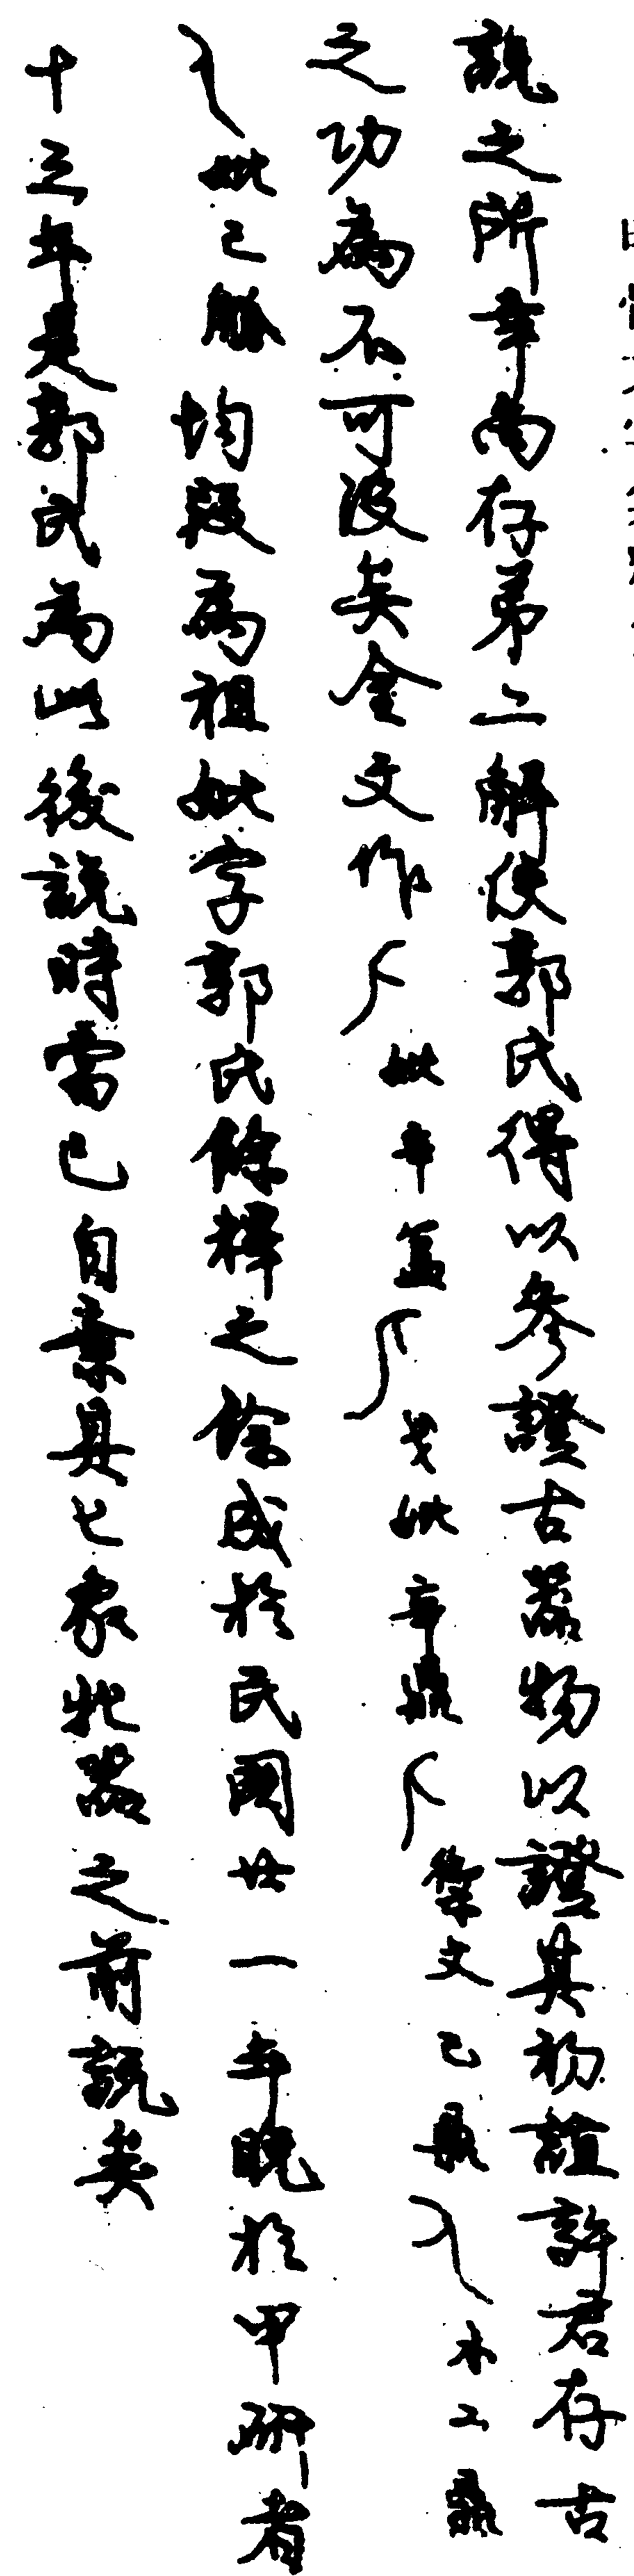 說之所幸尚存弟二解使郭氏得以參證古器物以證其初誼許君存古
之功為不可沒矣金文作 妣辛簋 戈妣辛鼎 𤔲文 己鼎 木工鼎
妣己觶均叚為祖妣字郭氏餘釋之餘成於民國廿一年晚於甲研者
十三年是郭氏為此後說時當已自棄其匕象牝器之前說矣